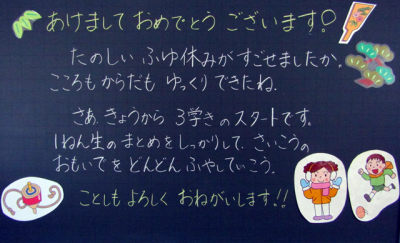 あけまして おめでとう ございます!
たのしい ふゆ休みが すごせましたか。
こころも からだも ゆっくり できたね。
さあ、きょうから 3学きの スタートです。
1ねん生の まとめを しっかりして、さいこうの
おもいでを どんどん ふやしていこう。
ことしも よろしく おねがいします!!